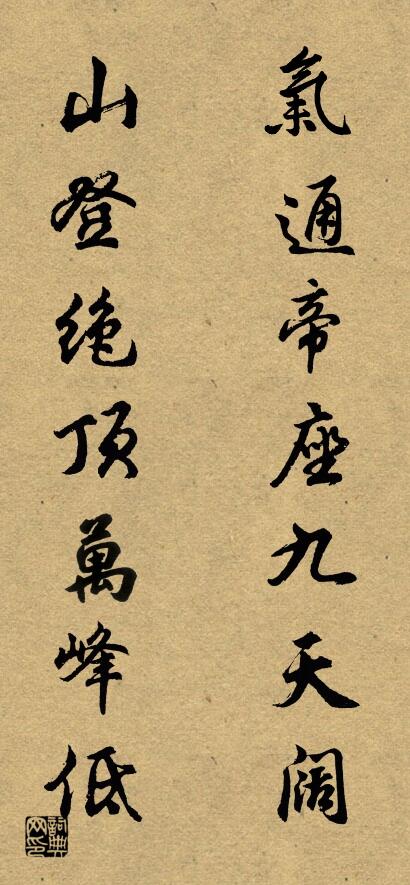 氣通帝座九天阔
山登绝顶萬峰低
詞典网印